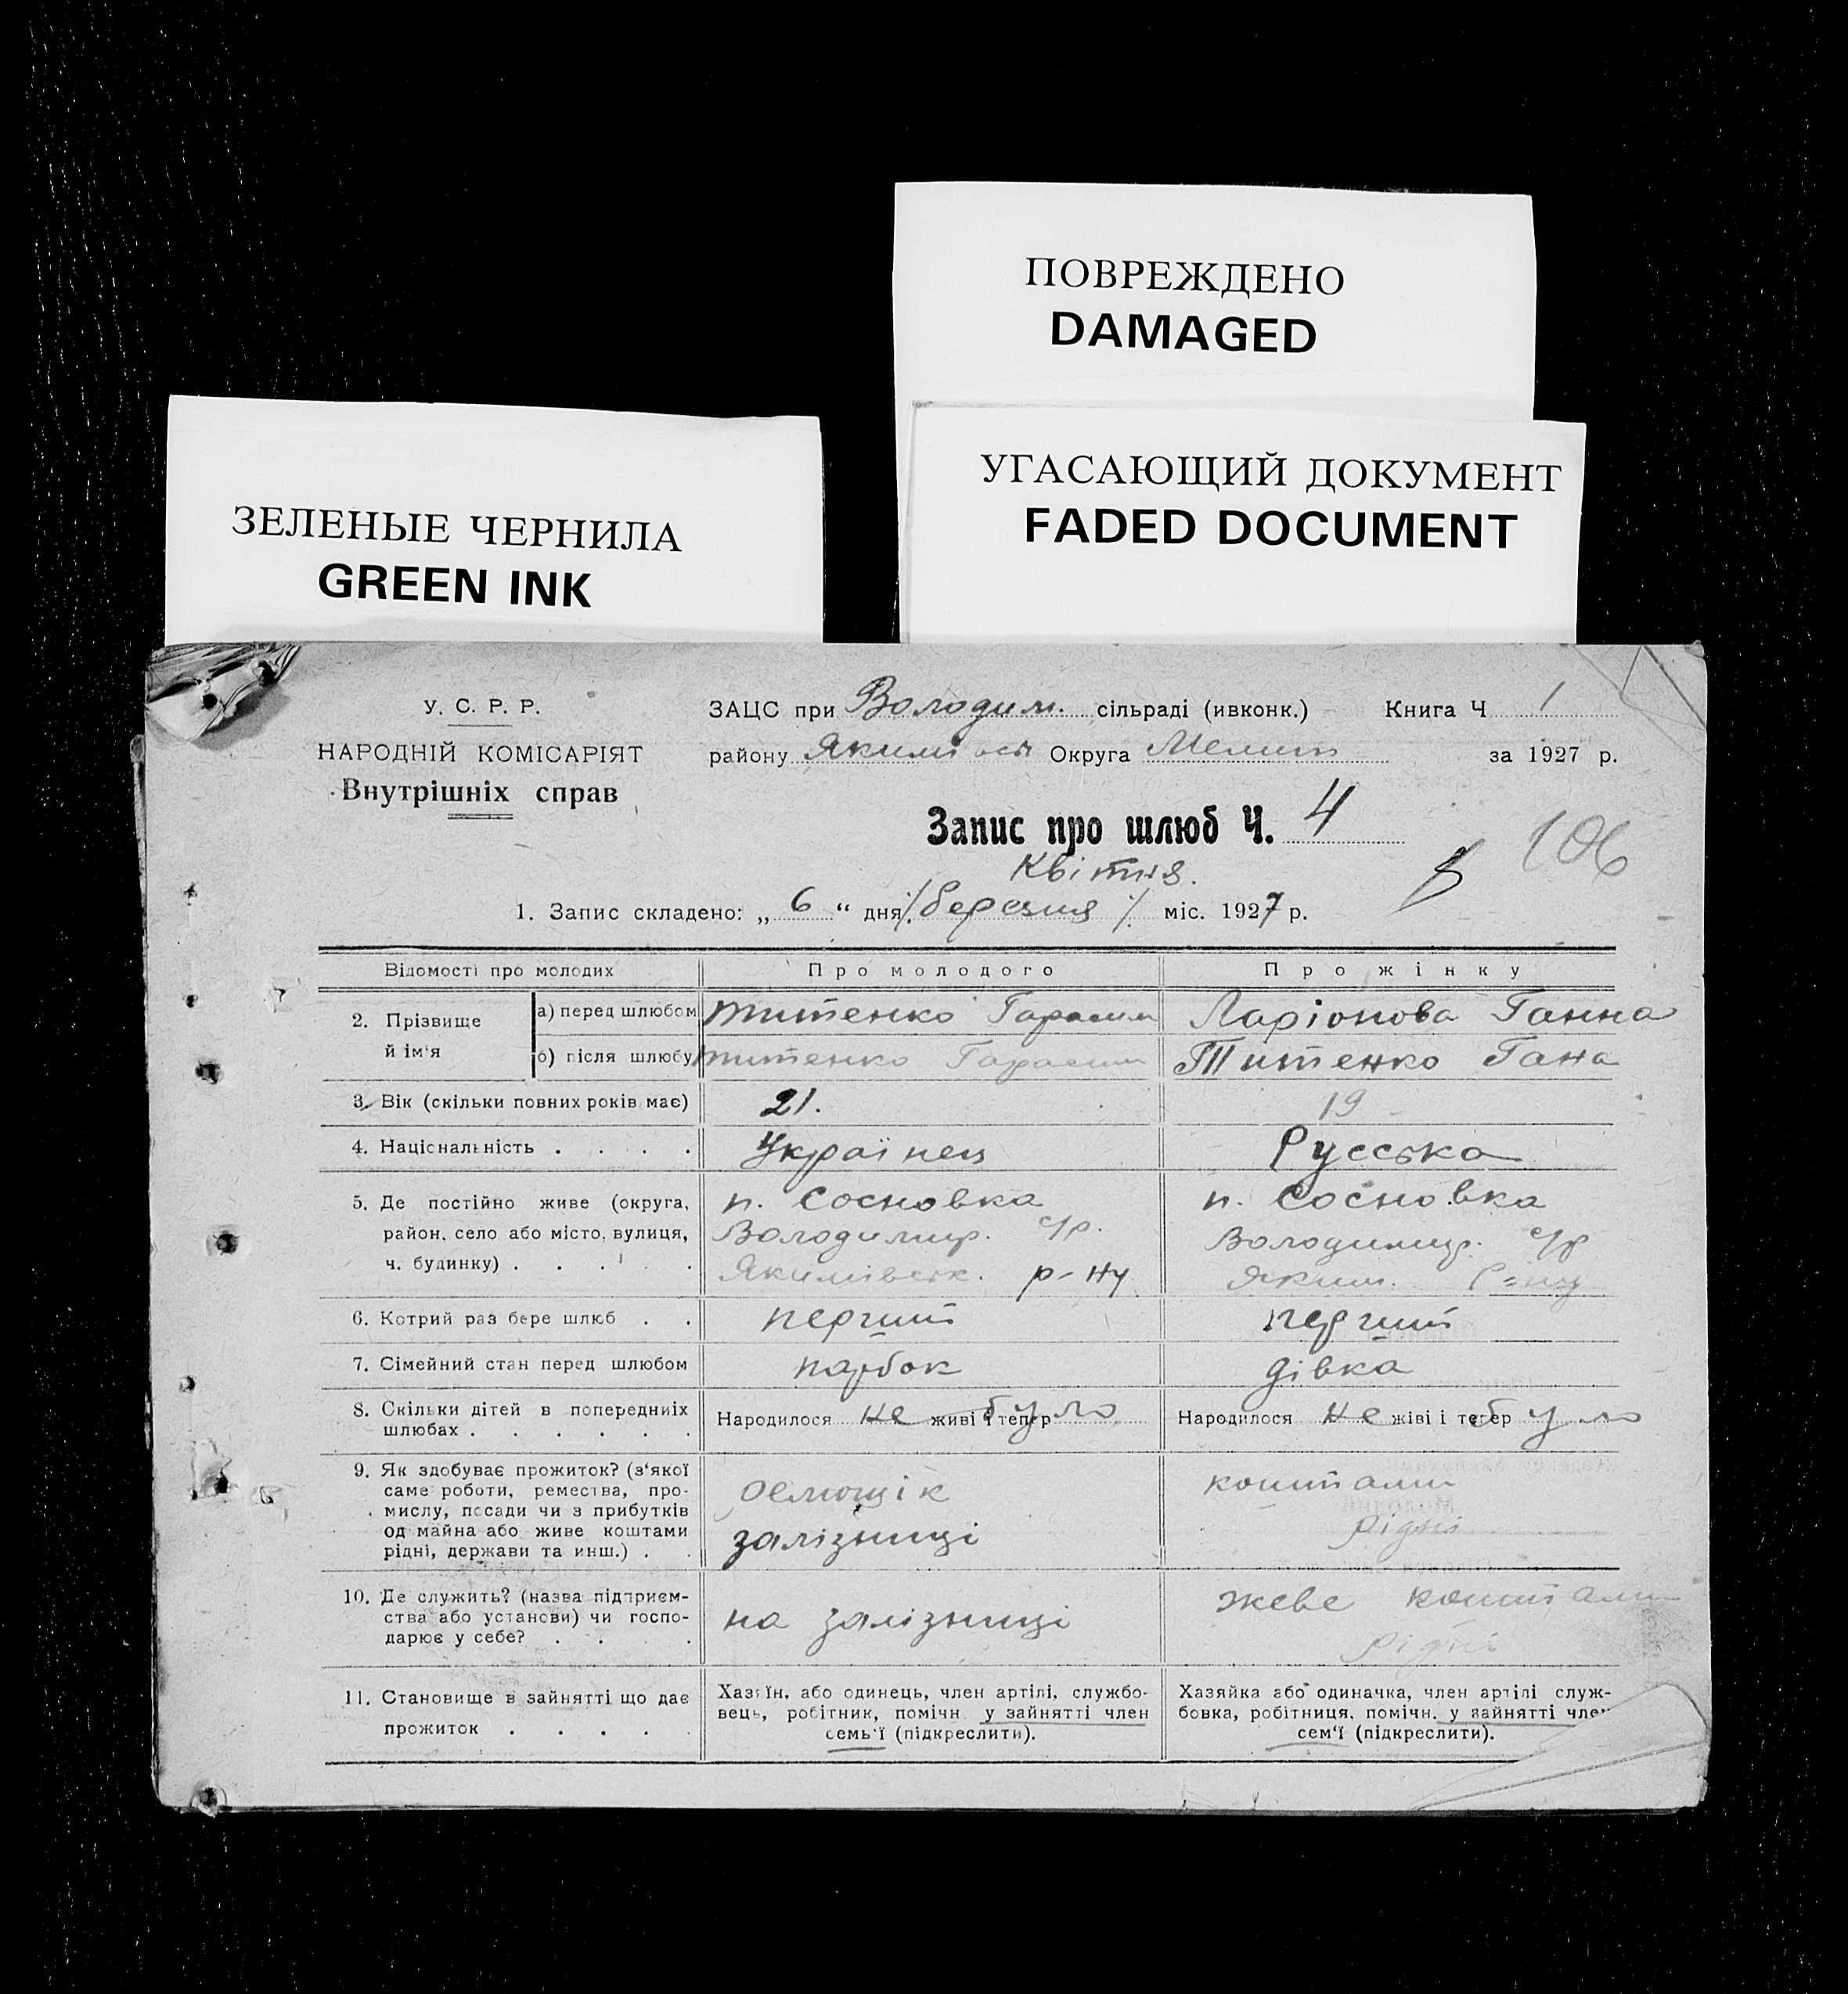 ПОВРЕЖДЕНО
DAMAGED
УГАСАЮЩИЙ ДОКУМЕНТ
FADED DOCUMENT
ЗЕЛЕНЫЕ ЧЕРНИЛА
GREEN INK
У. С. Р. Р.
НАРОДНІЙ КОМІСАРІЯТ
Внутрішніх справ
ЗАЦС при Володим. сільраді (ивконк.) Книга Ч 1
району Якимівськ Округа Мелит за 1927 р.
Запис про шлюб Ч. 4
106
Квітня.
1. Запис складено: „ 6 “ дня /березня/ міс. 1927 р.
Відомості про молодих Про молодого Про жінку
2. Прізвище й ім'я а) перед шлюбом Титенко Гарасим Ларіонова Ганна
б) після шлюбу Титенко Гарасим Титенко Гана
3. Вік (скільки повних років має) 21. 19
4. Національність . . . . Українец Русська
5. Де постійно живе (округа, п. Сосновка п. Сосновка
район, село або місто, вулиця, Володимир. с/р. Володимир. с/р
ч. будинку) . . . . . Якимівськ. р-ну Яким. р-ну
6. Котрий раз бере шлюб . . перший перший
7. Сімейний стан перед шлюбом парубок дівка
8. Скільки дітей в попередніх Народилося не живі і тепер було Народилося не жіві і тепер було
шлюбах . . . . . .
9. Як здобуває прожиток? (з'якої коштами
саме роботи, ремества, про-
мислу, посади чи з прибутків рідні
од майна або живе коштами залізниці
рідні, держави та инш.) . .
10. Де служить? (назва підприєм- живе коштами
ства або установи) чи госпо- на залізниці
дарює у себе? . . . . рідні
11. Становище в зайнятті що дає Хазяїн, або одинець, член артілі, службо- Хазяйка або одиначка, член артілі служ-
прожиток . . . . . вець, робітник, помічн. у зайнятті член бовка, робітниця, помічн. у зайнятті член
семь'ї (підкреслити). сем'ї (підкреслити).